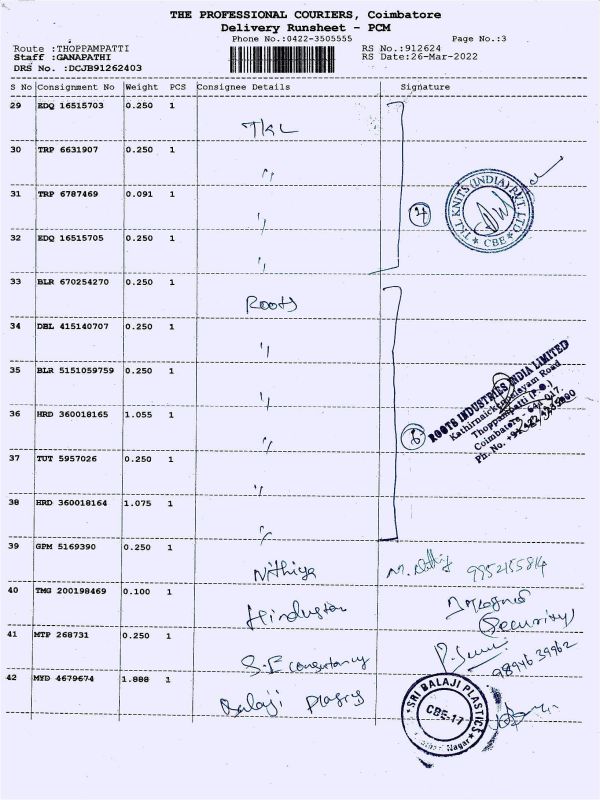 THE PROFESSIONAL COURIERS, Coimbatore
Delivery Runsheet - PCM
Phone No.:0422-3505555 Page No.:3
Route :THOPPAMPATTI RS No.:912624
Staff :GANAPATHI RS Date:26-Mar-2022
DRS No. :DCJB91262403
S No Consignment No Weight PCS Consignee Details Signature
29 EDQ 16515703 0.250 1 TKL
30 TRP 6631907 0.250 1 "
31 TRP 6787469 0.091 1 "
32 EDQ 16515705 0.250 1 "
4
T.K.L KNITS (INDIA) PVT. LTD
* CBE *
33 BLR 670254270 0.250 1 Roots
34 DBL 415140707 0.250 1 "
35 BLR 5151059759 0.250 1 "
36 HRD 360018165 1.055 1 "
37 TUT 5957026 0.250 1 "
38 HRD 360018164 1.075 1 "
6
ROOTS INDUSTRIES INDIA LIMITED
Road
Thoppampatti (P.O.)
Coimbatore - 641 017.
Ph. No.
39 GPM 5169390 0.250 1 Nithiya 9952155814
40 TMG 200198469 0.100 1 Hindustan
(Security)
41 MTP 268731 0.250 1 S.F consultancy
9894639962
42 MYD 4679674 1.888 1 Balaji
SRI BALAJI PLASTICS
CBE-17
Nagar